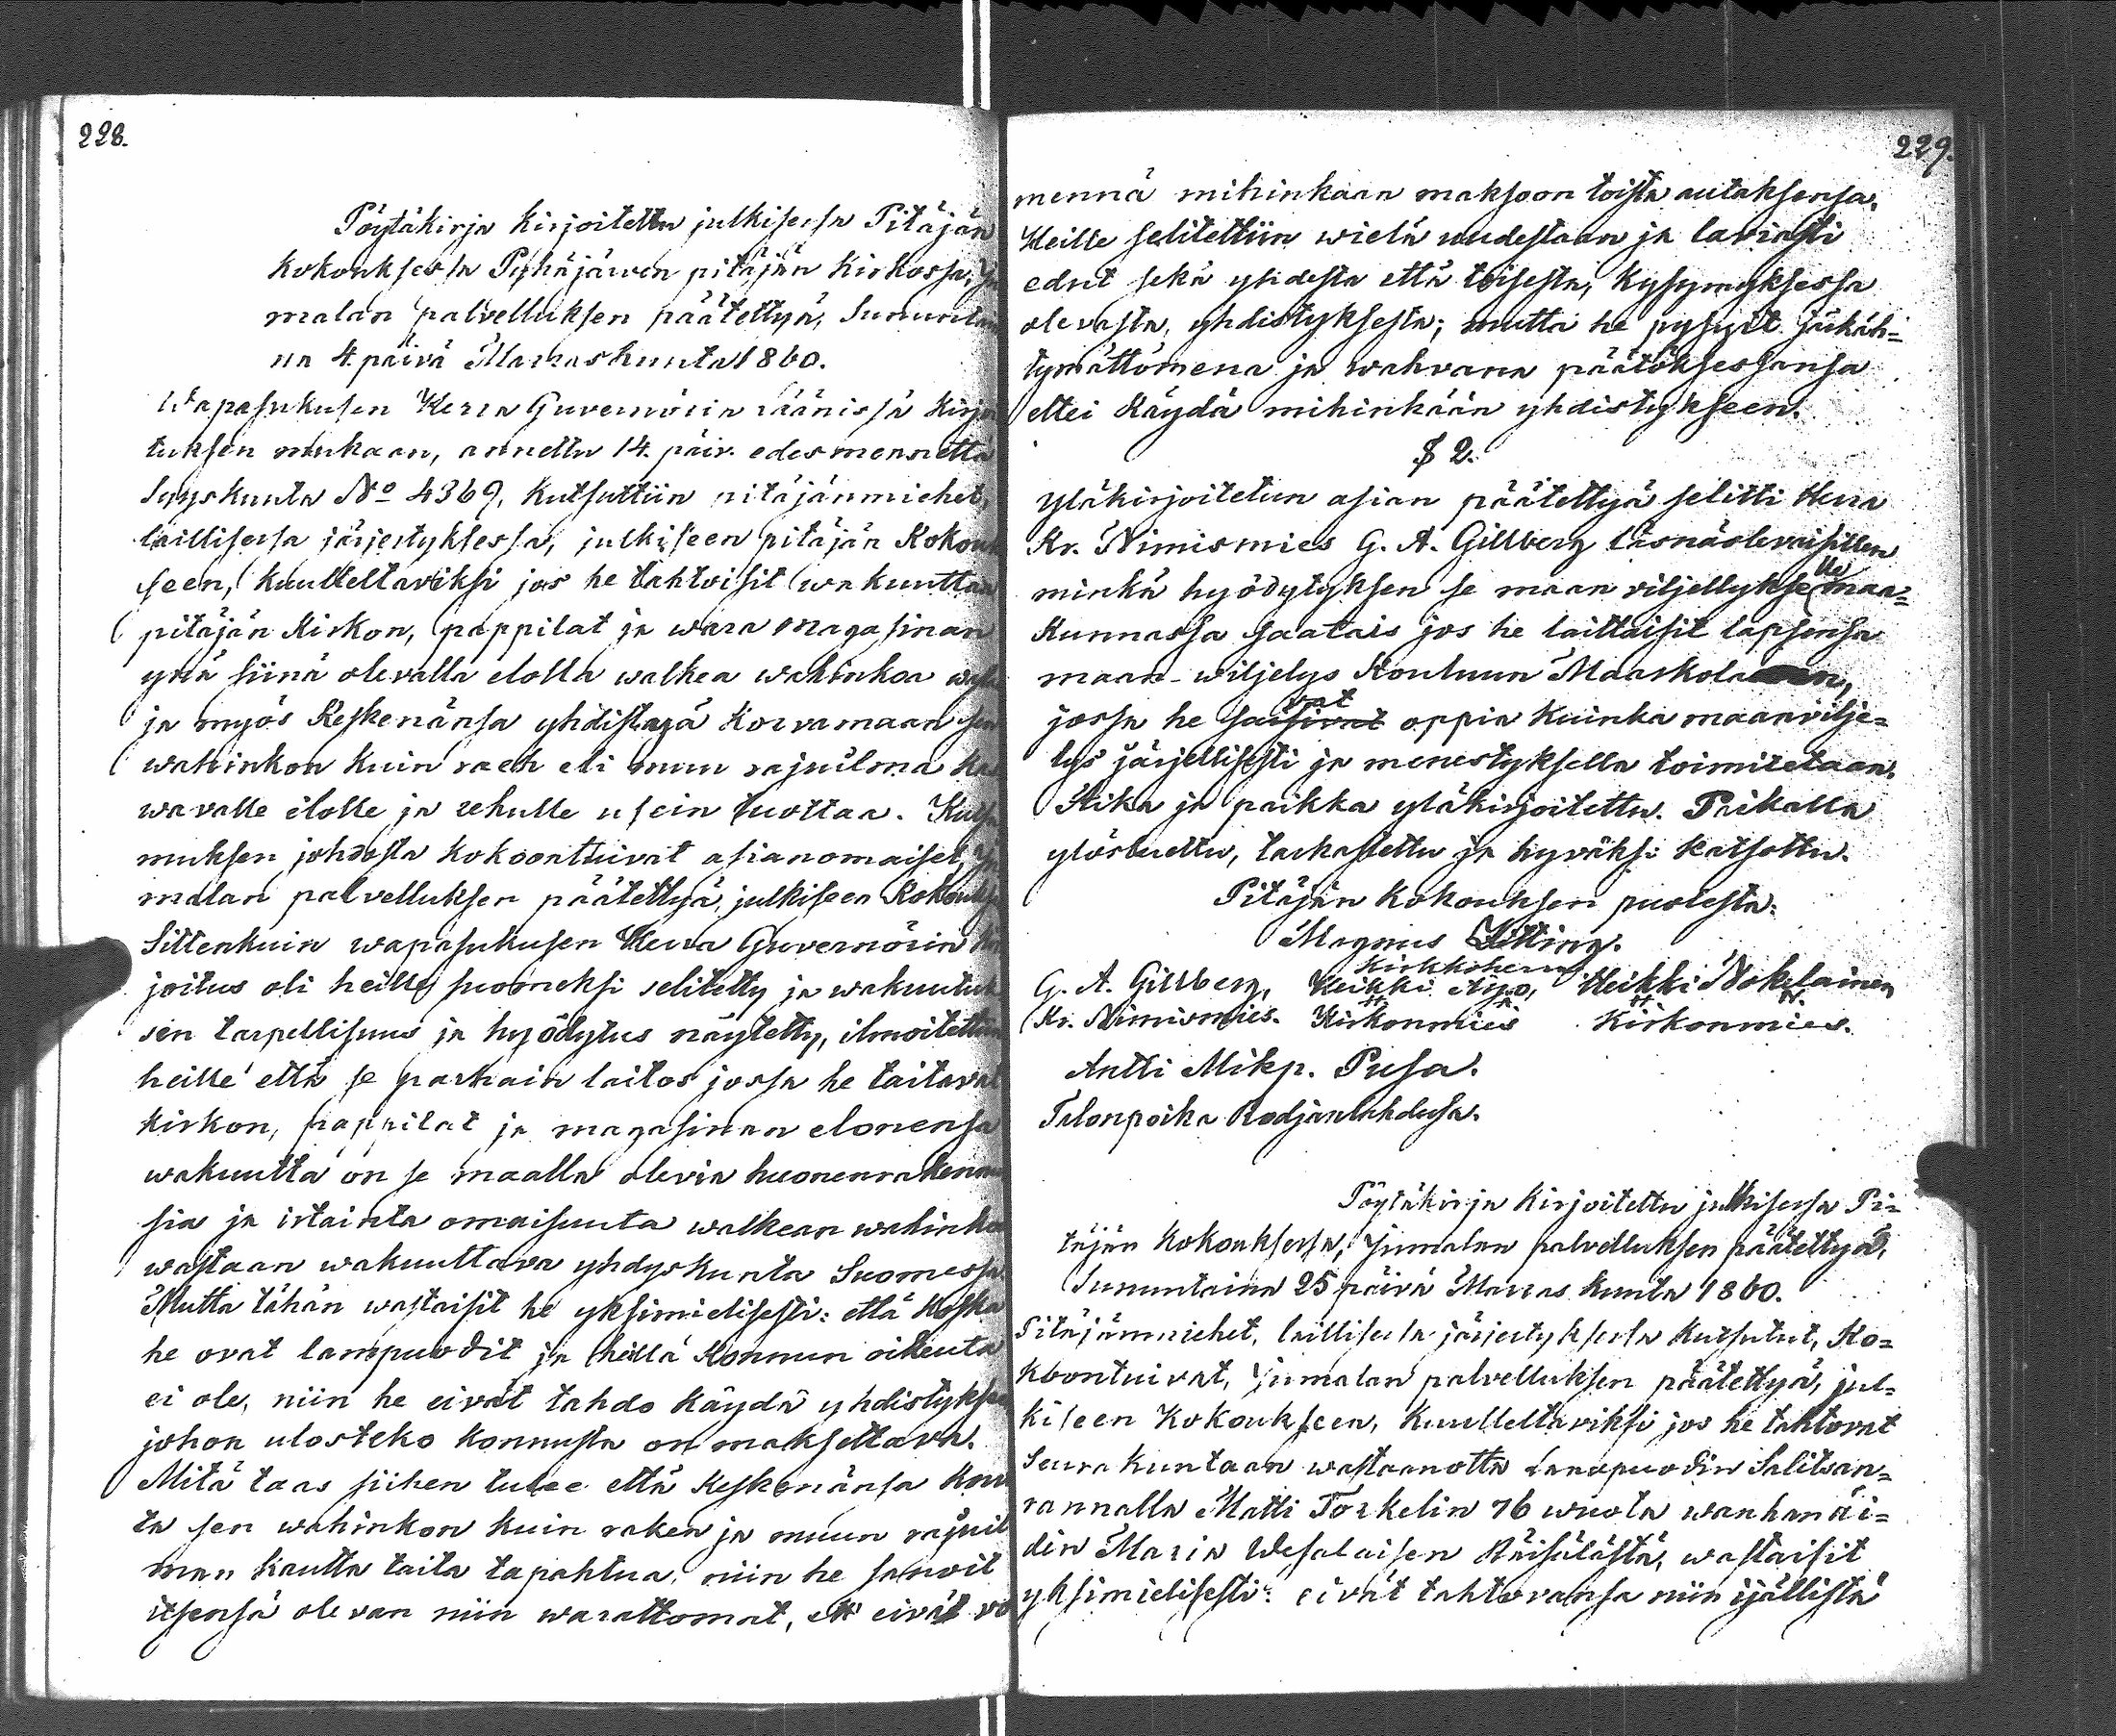 228.
Pöytäkirja kirjoitettu julkisessa Pitäjän
kokouksessa Pyhäjärwen pitäjän Kirkossa, Ju
malan palvelluksen päätettyä, Sunnuntai
na 4. päivä Marraskuuta 1860.
Wapasukusen Herra Guvernörin läänissä Kirjoi
tuksen mukaan, annettu 14. päiv. edesmennettä
Syyskuuta No 4369, Kutsuttiin pitäjänmiehet,
laillisessa järjestyksessa, julkiseen pitäjän Kokouk
seen, kuulteltaviksi jos he tahtoisit wakuuttaa
pitäjän Kirkon, pappilat ja wara magasinan
ynä siinä olevalla elolla walkea wahinkoa
ja myös Keskenänsa yhdistayä Korvamaan sen
wahinkon kuin raeh eli muu rajuilma kas
wavalle elolle ja rehulle usein tuottaa. Kutsu
muksen johdosta kokoontuivat asianomaiset, Ju
malan palvelluksen päätettyä, julkiseen Kokoukse
Sittenkuin wapasukusen Herra Guvernörin kir
joitus oli heille suomeksi selitetty ja wakuutuk
sen tarpellisuus ja hyödytus näytetty, ilmoitettiin
heille että se parhain laitos jossa he taitavat
kirkon, pappilat ja magasinan elonensa
wakuutta on se maalla olevia huonenrakennu
sia ja irtainta omaisuuta walkean wahinkoa
wastaan wakuuttava yhdyskunta Suomessa
Mutta tähän wastaisit he yksimielisesti: että koska
he ovat lampuodit ja heillä Konnun oikeuta
ei ole, niin he eivät tahdo käydä yhdistykseen
johon ulosteko konnusta on maksettava.
Mitä taas siihen tulee että Keskenänsa Korva
ta sen wahinkon kuin raken ja muun rajuil
man kautta taita tapahtua, niin he sanoit
itsensä olevan niin warattomat, ett eivät vo
229.
mennä mihinkään maksoon toista autaksensa.
Heille selitettiin wielä uudestaan ja laviasti
edut sekä yhdesta että toisesta, Kysymyksessa
olevasta, yhdistyksesta; mutta he pysyit järkäh=
tymättömena ja wahvana päätöksessansa
ettei Käydä mihinkään yhdistykseen.
§ 2.
Yläkirjoitetun asian päätettyä selitti Herra
Kr. Nimismies G. A. Gillberg läsnäolevaisillen
minkä hyödytyksen se maan viljellykselle maa=
kunnassa saatais jos he laittaisit lapsensa
maan-wiljelys Kouluun Maaskola
jossa he saisivat vat oppia Kuinka maanvilje=
lys järjellisesti ja menestyksella toimitetaan.
Aika ja paikka yläkirjoitettu. Paikalla
ylösluettu, tarkastettu ja hyväksi katsottu.
Pitäjän Kokouksen puolesta:
Magnus
Kirkkoherra
G. A. Gillberg, Heikki Äijö, Heikki Nokelainen
Kr. Nimismies. Kirkonmies Kirkonmies.
Antti Mikp. Pusa.
Talonpoika Rodjanlahdusa.
Pöytäkirja Kirjoitettu julkisessa Pi=
täjän Kokouksessa, Jumalan palvelluksen päätettyä,
Sunnuntaina 25 päivä Marras Kuuta 1860.
Pitäjänmiehet, laillisessa järjestyksessa Kutsutut, Ko=
koontuivat, Jumalan palvelluksen päätettyä, jul=
kiseen Kokoukseen, Kuulteltaviksi jos he tahtovat
Seurakuntaan wastaanotta Lampuodin Salitsan=
rannalla Matti Torkelin 76 wuota wanhan äi=
din Maria Wesalaisen Räisälästä, wastaisit
yksimielisesti: eivät tahtovansa niin ijällistä